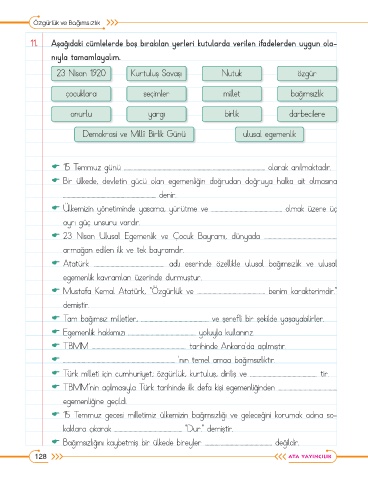 Özgürlük ve Bağımsızlık
11. Aşağıdaki cümlelerde boş bırakılan yerleri kutularda verilen ifadelerden uygun ola-
nıyla tamamlayalım.
23 Nisan 1920 Kurtuluş Savaşı Nutuk özgür
çocuklara seçimler millet bağımsızlık
onurlu yargı birlik darbecilere
Demokrasi ve Millî Birlik Günü ulusal egemenlik
15 Temmuz günü olarak anılmaktadır.
Bir ülkede, devletin gücü olan egemenliğin doğrudan doğruya halka ait olmasına
denir.
Ülkemizin yönetiminde yasama, yürütme ve olmak üzere üç
ayrı güç unsuru vardır.
23 Nisan Ulusal Egemenlik ve Çocuk Bayramı, dünyada
armağan edilen ilk ve tek bayramdır.
Atatürk adlı eserinde özellikle ulusal bağımsızlık ve ulusal
egemenlik kavramları üzerinde durmuştur.
Mustafa Kemal Atatürk, "Özgürlük ve benim karakterimdir."
demiştir.
Tam bağımsız milletler, ve şerefli bir şekilde yaşayabilirler.
Egemenlik hakkımızı yoluyla kullanırız.
TBMM tarihinde Ankara'da açılmıştır.
'nın temel amacı bağımsızlıktır.
Türk milleti için cumhuriyet; özgürlük, kurtuluş, diriliş ve tir.
TBMM'nin açılmasıyla Türk tarihinde ilk defa kişi egemenliğinden
egemenliğine geçildi.
15 Temmuz gecesi milletimiz ülkemizin bağımsızlığı ve geleceğini korumak adına so-
kaklara çıkarak "Dur." demiştir.
Bağımsızlığını kaybetmiş bir ülkede bireyler değildir.
128 ATA YAYINCILIK